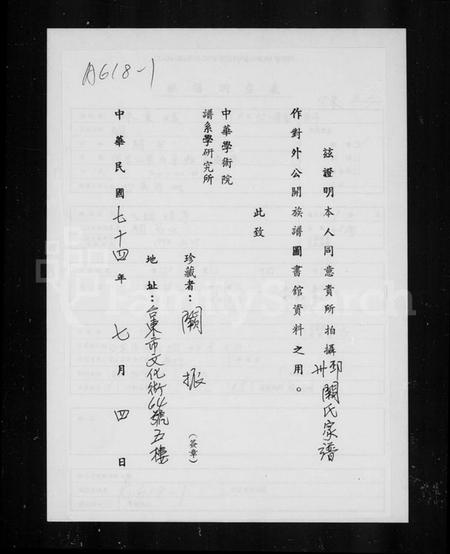 A618-1
茲證明本人同意貴所拍攝邳州闞氏家譜
作對外公開族譜圖書館資料之用。
此致
中華學術院
譜系學研究所
珍藏者：闞 振 (簽章)
地址：台東市文化街64號五樓
中華民國七十四年七月四日
FamilySearch